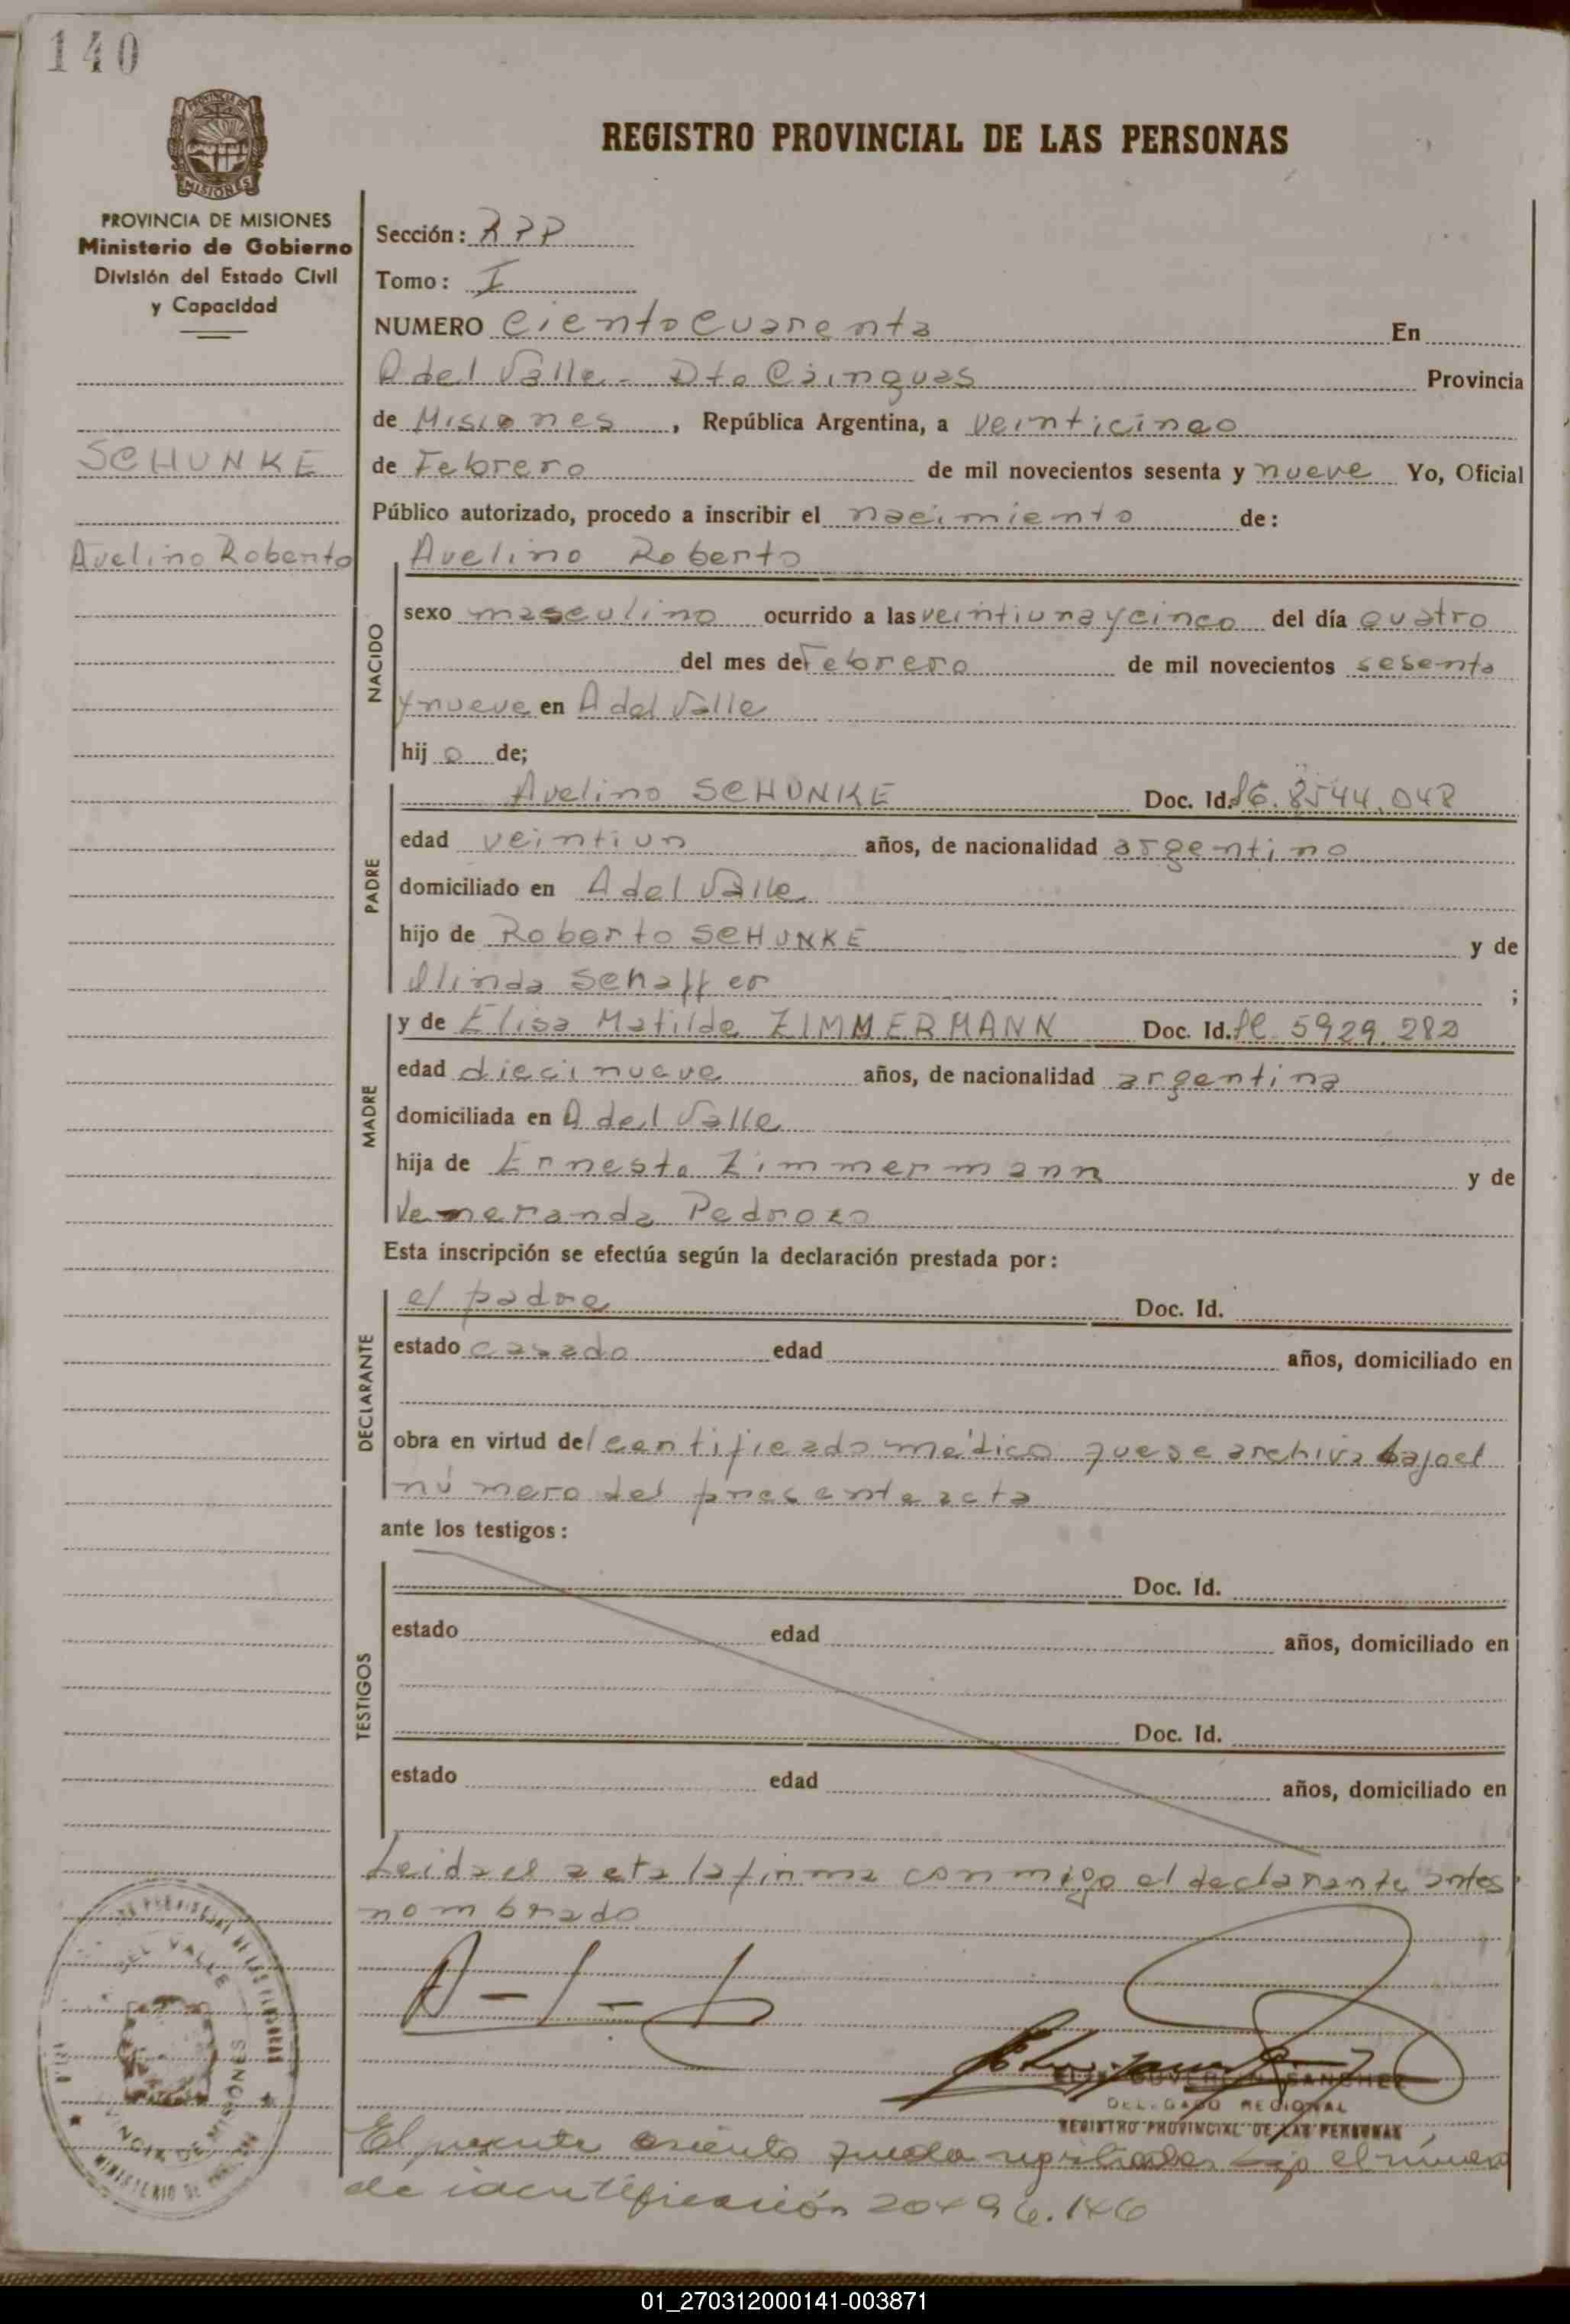 140
REGISTRO PROVINCIAL DE LAS PERSONAS
MISIONES
PROVINCIA DE MISIONES
Ministerio de Gobierno
División del Estado Civil
y Capacidad
SCHUNKE
Avelino Roberto
Sección: RPP
Tomo: I
NUMERO Ciento Cuarenta En
A del Valle - Dto Cainguas Provincia
de Misiones, República Argentina, a veinticinco
de Febrero de mil novecientos sesenta y nueve Yo, Oficial
Público autorizado, procedo a inscribir el nacimiento de:
Avelino Roberto
NACIDO
sexo masculino ocurrido a las veintiuna y cinco del día cuatro
del mes de Febrero de mil novecientos sesenta
y nueve en A del Valle
hij o de;
PADRE
Avelino SCHUNKE Doc. Id. 8544.048
edad veintiun años, de nacionalidad argentino
domiciliado en A del Valle
hijo de Roberto SCHUNKE y de
Olinda Schaffer ;
MADRE
y de Elisa Matilde ZIMMERMANN Doc. Id. 5929.282
edad diecinueve años, de nacionalidad argentina
domiciliada en A del Valle
hija de Ernesto Zimmermann y de
Veneranda Pedrozo
Esta inscripción se efectúa según la declaración prestada por:
DECLARANTE
el padre Doc. Id.
estado casado edad años, domiciliado en
obra en virtud del certificado médico que se archiva bajo el
número del presente acta
ante los testigos:
TESTIGOS
Doc. Id.
estado edad años, domiciliado en
Doc. Id.
estado edad años, domiciliado en
Leida el acta la firma conmigo el declarante antes
nombrado
DEL VALLE
PROVINCIA DE MISIONES
MINISTERIO DE
SANCHEZ
DELEGADO REGIONAL
REGISTRO PROVINCIAL DE LAS PERSONAS
El presente asiento queda registrado bajo el número
de identificación 20.496.146
01_270312000141-003871